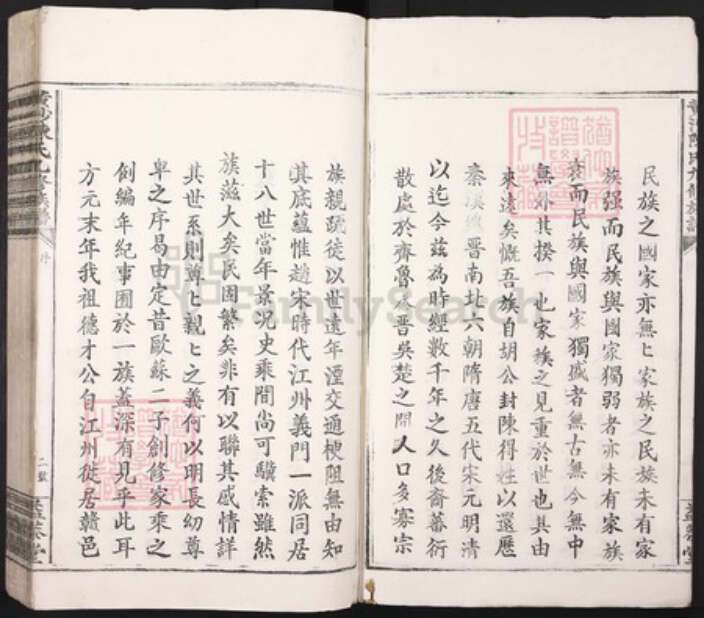 民族之國家亦無無家族之民族未有家
族强而民族與國家獨弱者亦未有家族
衰而民族與國家獨盛者無古無今無中
無外其揆一也家族之見重於世也其由
來遠矣慨吾族自胡公封陳得姓以還歷
秦漢魏晋南北六朝隋唐五代宋元明清
以迄今兹為時經數千年之久後裔蕃衍
散處於齊魯晋吳楚之間人口多寡宗
族親疏徒以世遠年湮交通梗阻無由知
其底蘊惟趙宋時代江州義門一派同居
十八世當年景况史乘間尚可驥索雖然
族滋大矣民固繁矣非有以聯其感情詳
其世系則尊尊親親之義何以明長幼尊
卑之序曷由定昔歐蘇二子創修家乘之
例編年紀事囿於一族蓋深有見乎此耳
方元末年我祖德才公自江州徙居贛邑
序
二
FamilySearch